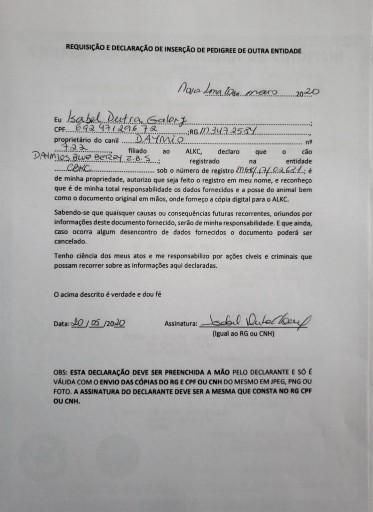 REQUISIÇÃO E DECLARAÇÃO DE INSERÇÃO DE PEDIGREE DE OUTRA ENTIDADE
Nova Lima, maio 2020
Eu Isabel Dutra
CPF 692 971 296 72 ;RG M3472584
proprietário do canil DAYMIO nº
722 filiado ao ALKC, declaro que o cão
DAIMIOS BLUE BERRY Z.B.S. registrado na entidade
CBKC sob o número de registro ; é
de minha propriedade, autorizo que seja feito o registro em meu nome, e reconheço
que é de minha total responsabilidade os dados fornecidos e a posse do animal bem
como o documental em mãos, onde forneço a cópia digital para o ALKC.
Sabendo-se que quaisquer causas ou consequências futuras recorrentes, oriundos por
informações deste documento fornecido, serão de minha responsabilidade. E que ainda,
caso ocorra algum desencontro de dados fornecidos o documento poderá ser
cancelado.
Tenho ciência dos meus atos e me responsabilizo por ações cíveis e criminais que
possam recorrer sobre as informações aqui declaradas.
O acima descrito é verdade e dou fé
Data: 20/05/2020 Assinatura: Isabel Dutra
(Igual ao RG ou CNH)
OBS: ESTA DECLARAÇÃO DEVE SER PREENCHIDA A MÃO PELO DECLARANTE E SÓ É
VÁLIDA COM O ENVIO DAS CÓPIAS DO RG E CPF OU CNH DO MESMO EM JPEG, PNG OU
FOTO. A ASSINATURA DO DECLARANTE DEVE SER A MESMA QUE CONSTA NO RG CPF
OU CNH.